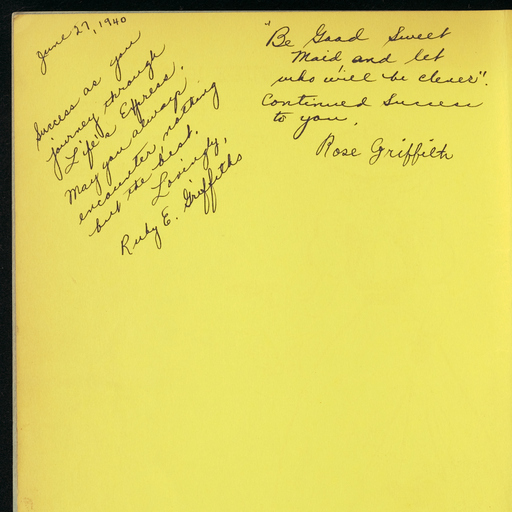 June 27, 1940
Success as you
journey through
Life's Express.
May you always
encounter nothing
but the best.
Lovingly,
Ruby E. Griffiths
"Be Good Sweet
Maid and let
who will be clever".
Continued Success
to you.
Rose Griffith